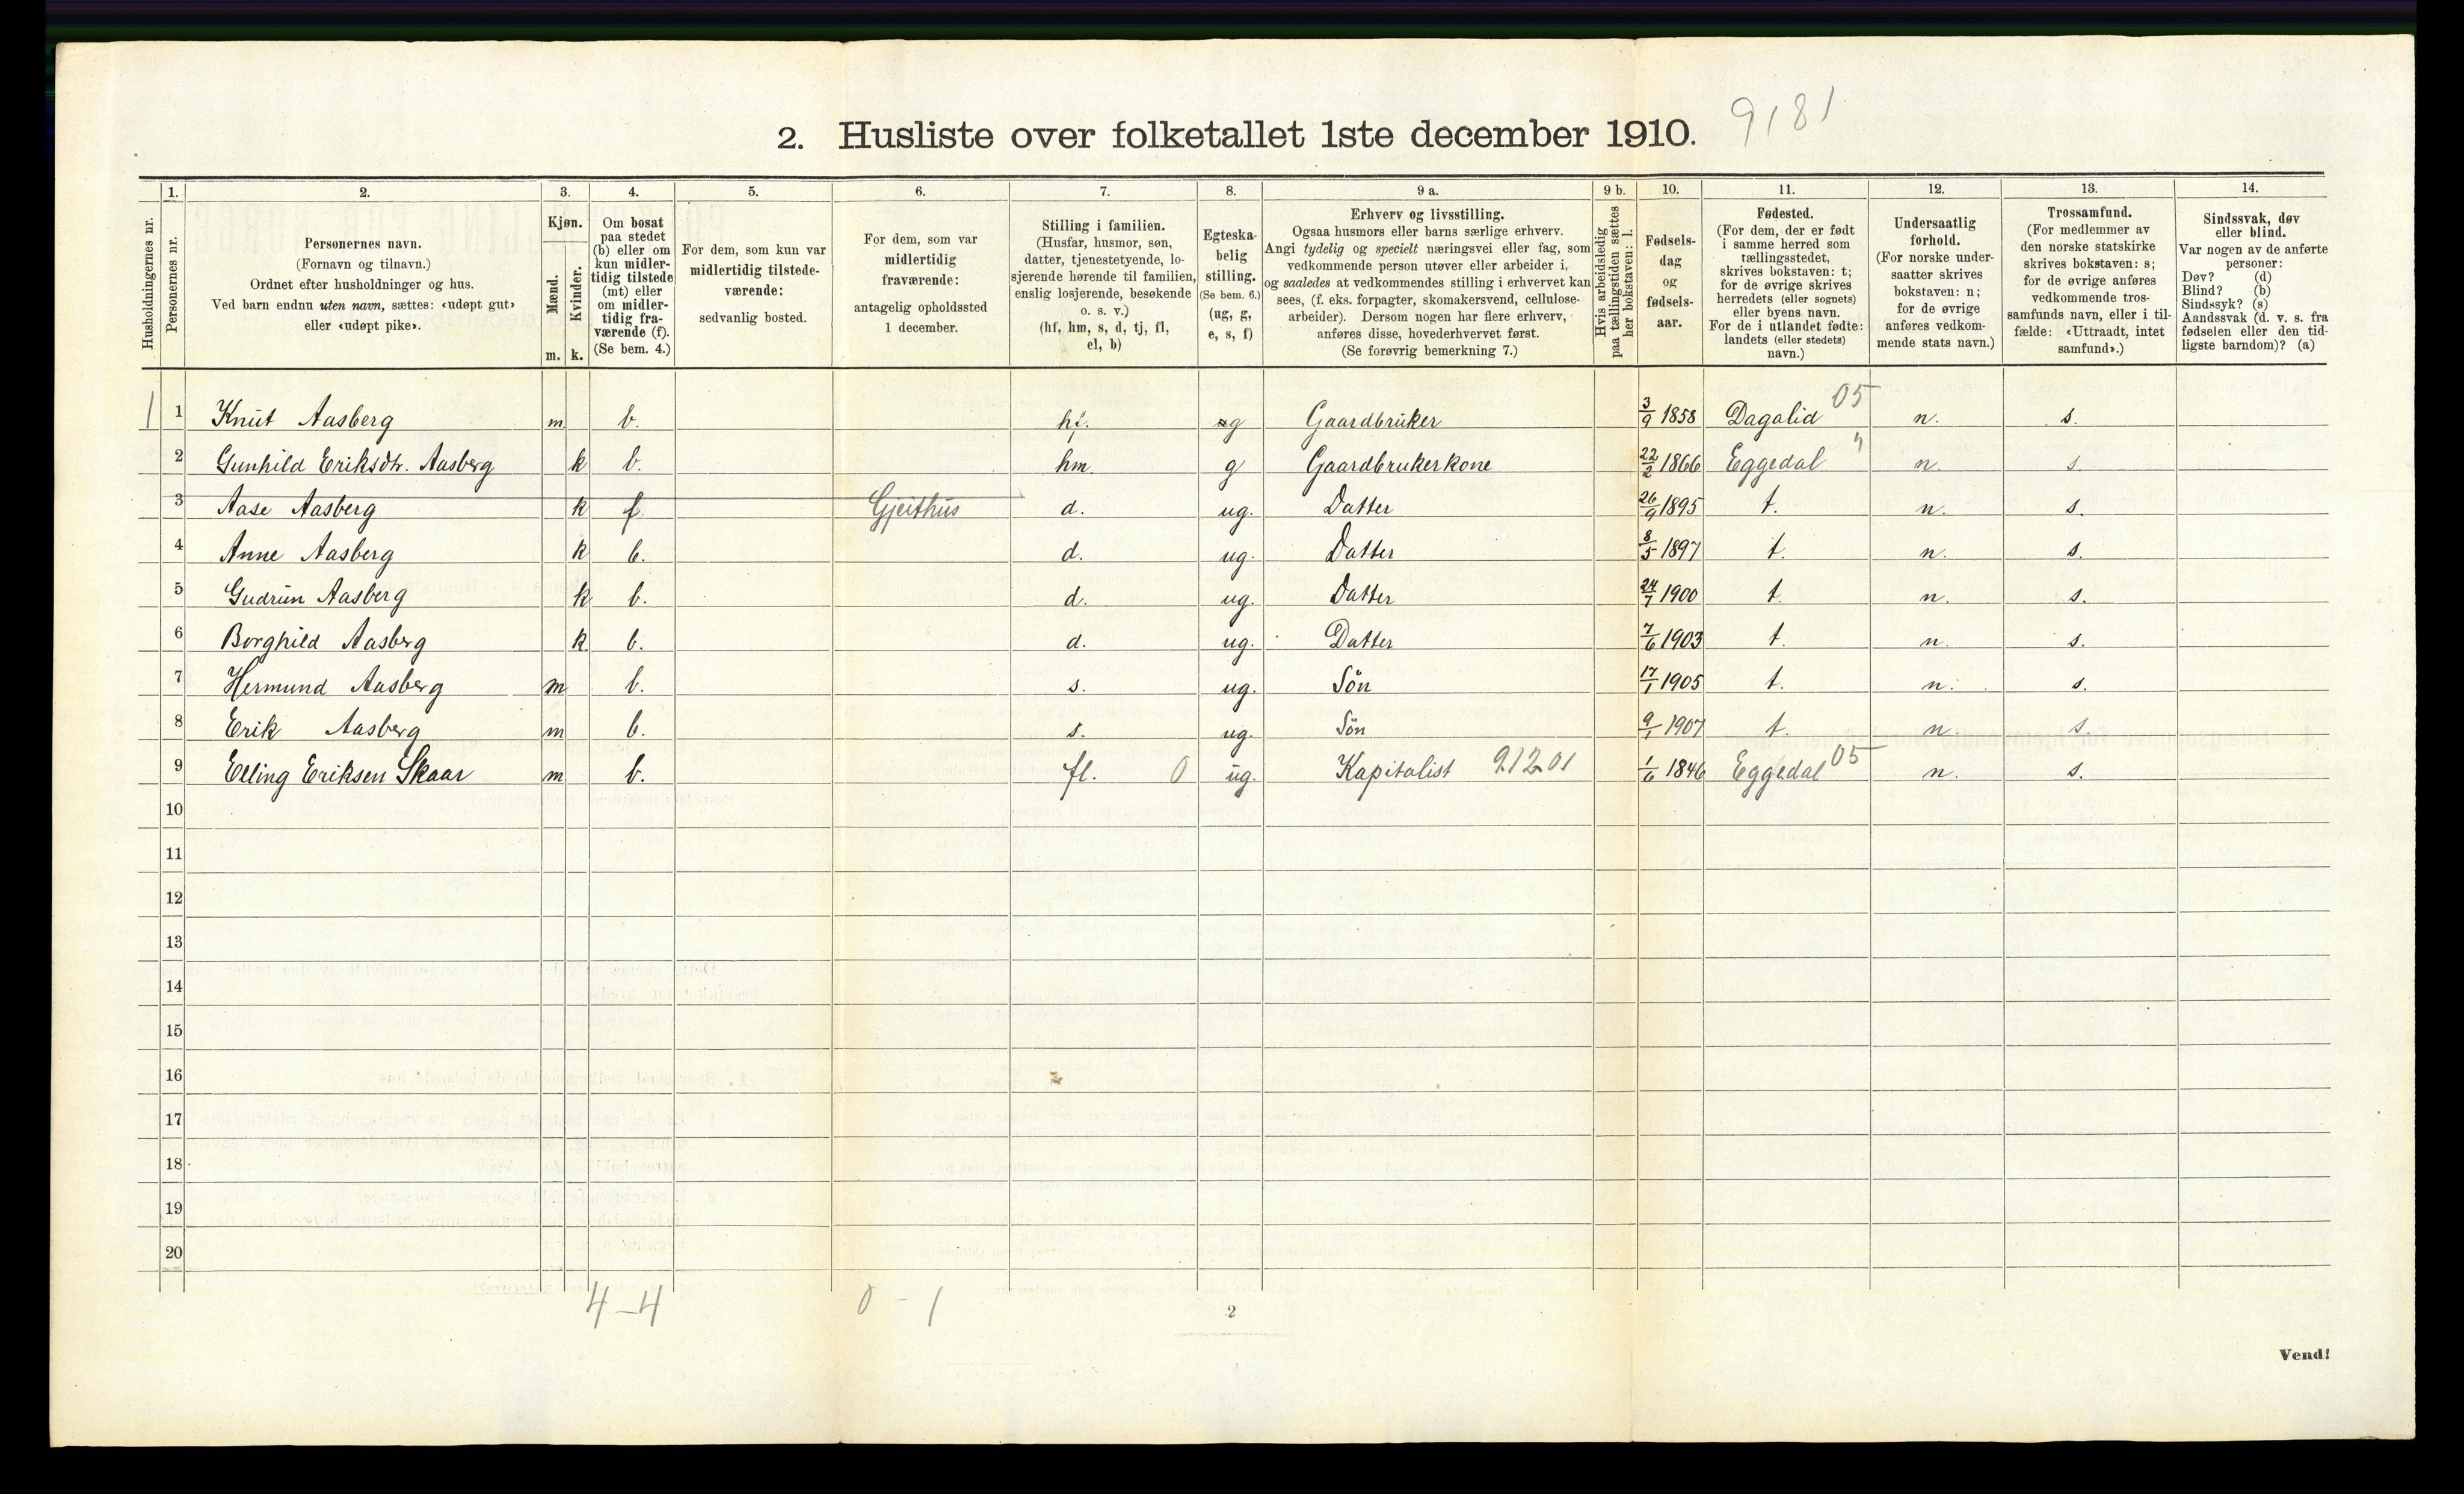 2. Husliste over folketallet 1ste december 1910. 9181
1. 2. 3. 4. 5. 6. 7. 8. 9 a. 9 b. 10. 11. 12. 13. 14.
Husholdningernes nr.
Personernes nr.
Personernes navn.
(Fornavn og tilnavn.)
Ordnet efter husholdninger og hus.
Ved barn endnu uten navn, sættes: «udøpt gut»
eller «udøpt pike».
Kjøn.
Mænd. Kvinder.
m. k.
Om bosat
paa stedet
(b) eller om
kun midler-
tidig tilstede
(mt) eller
om midler-
tidig fra-
værende (f).
(Se bem. 4.)
For dem, som kun var
midlertidig tilstede-
værende:
sedvanlig bosted.
For dem, som var
midlertidig
fraværende:
antagelig opholdssted
1 december.
Stilling i familien.
(Husfar, husmor, søn,
datter, tjenestetyende, lo-
sjerende hørende til familien,
enslig losjerende, besøkende
o. s. v.)
(hf, hm, s, d, tj, fl,
el, b)
Egteska-
belig
stilling.
(Se bem. 6.)
(ug, g,
e, s, f)
Erhverv og livsstilling.
Ogsaa husmors eller barns særlige erhverv.
Angi tydelig og specielt næringsvei eller fag, som
vedkommende person utøver eller arbeider i,
og saaledes at vedkommendes stilling i erhvervet kan
sees, (f. eks. forpagter, skomakersvend, cellulose-
arbeider). Dersom nogen har flere erhverv,
anføres disse, hovederhvervet først.
(Se forøvrig bemerkning 7.)
Hvis arbeidsledig
paa tællingstiden sættes
her bokstaven: l.
Fødsels-
dag
og
fødsels-
aar.
Fødested.
(For dem, der er født
i samme herred som
tællingsstedet,
skrives bokstaven: t;
for de øvrige skrives
herredets (eller sognets)
eller byens navn.
For de i utlandet fødte:
landets (eller stedets)
navn.)
Undersaatlig
forhold.
(For norske under-
saatter skrives
bokstaven: n;
for de øvrige
anføres vedkom-
mende stats navn.)
Trossamfund.
(For medlemmer av
den norske statskirke
skrives bokstaven: s;
for de øvrige anføres
vedkommende tros-
samfunds navn, eller i til-
fælde: «Uttraadt, intet
samfund».)
Sindssvak, døv
eller blind.
Var nogen av de anførte
personer:
Døv? (d)
Blind? (b)
Sindssyk? (s)
Aandssvak (d. v. s. fra
fødselen eller den tid-
ligste barndom)? (a)
1 1 Knut Aasberg m b. hf. g Gaardbruker 3/9 1858 Dagalid 05 n. s.
2 Gunhild Eriksdtr. Aasberg k b. hm. g Gaardbrukerkone 22/2 1866 Eggedal " n. s.
3 Aase Aasberg k f Gjeithus d. ug. Datter 26/9 1895 t. n. s.
4 Anne Aasberg k b. d. ug. Datter 8/5 1897 t. n. s.
5 Gudrun Aasberg k b. d. ug. Datter 24/7 1900 t. n. s.
6 Borghild Aasberg k b. d. ug. Datter 7/6 1903 t. n. s.
7 Hermund Aasberg m b. s. ug. Sön 17/1 1905 t. n. s.
8 Erik Aasberg m b. s. ug. Sön 9/1 1907 t. n. s.
9 Elling Eriksen Skaar m b. fl. 0 ug. Kapitalist 91201 1/6 1846 Eggedal 05 n. s.
10
11
12
13
14
15
16
17
18
19
20
4-4 0-1
2
Vend!